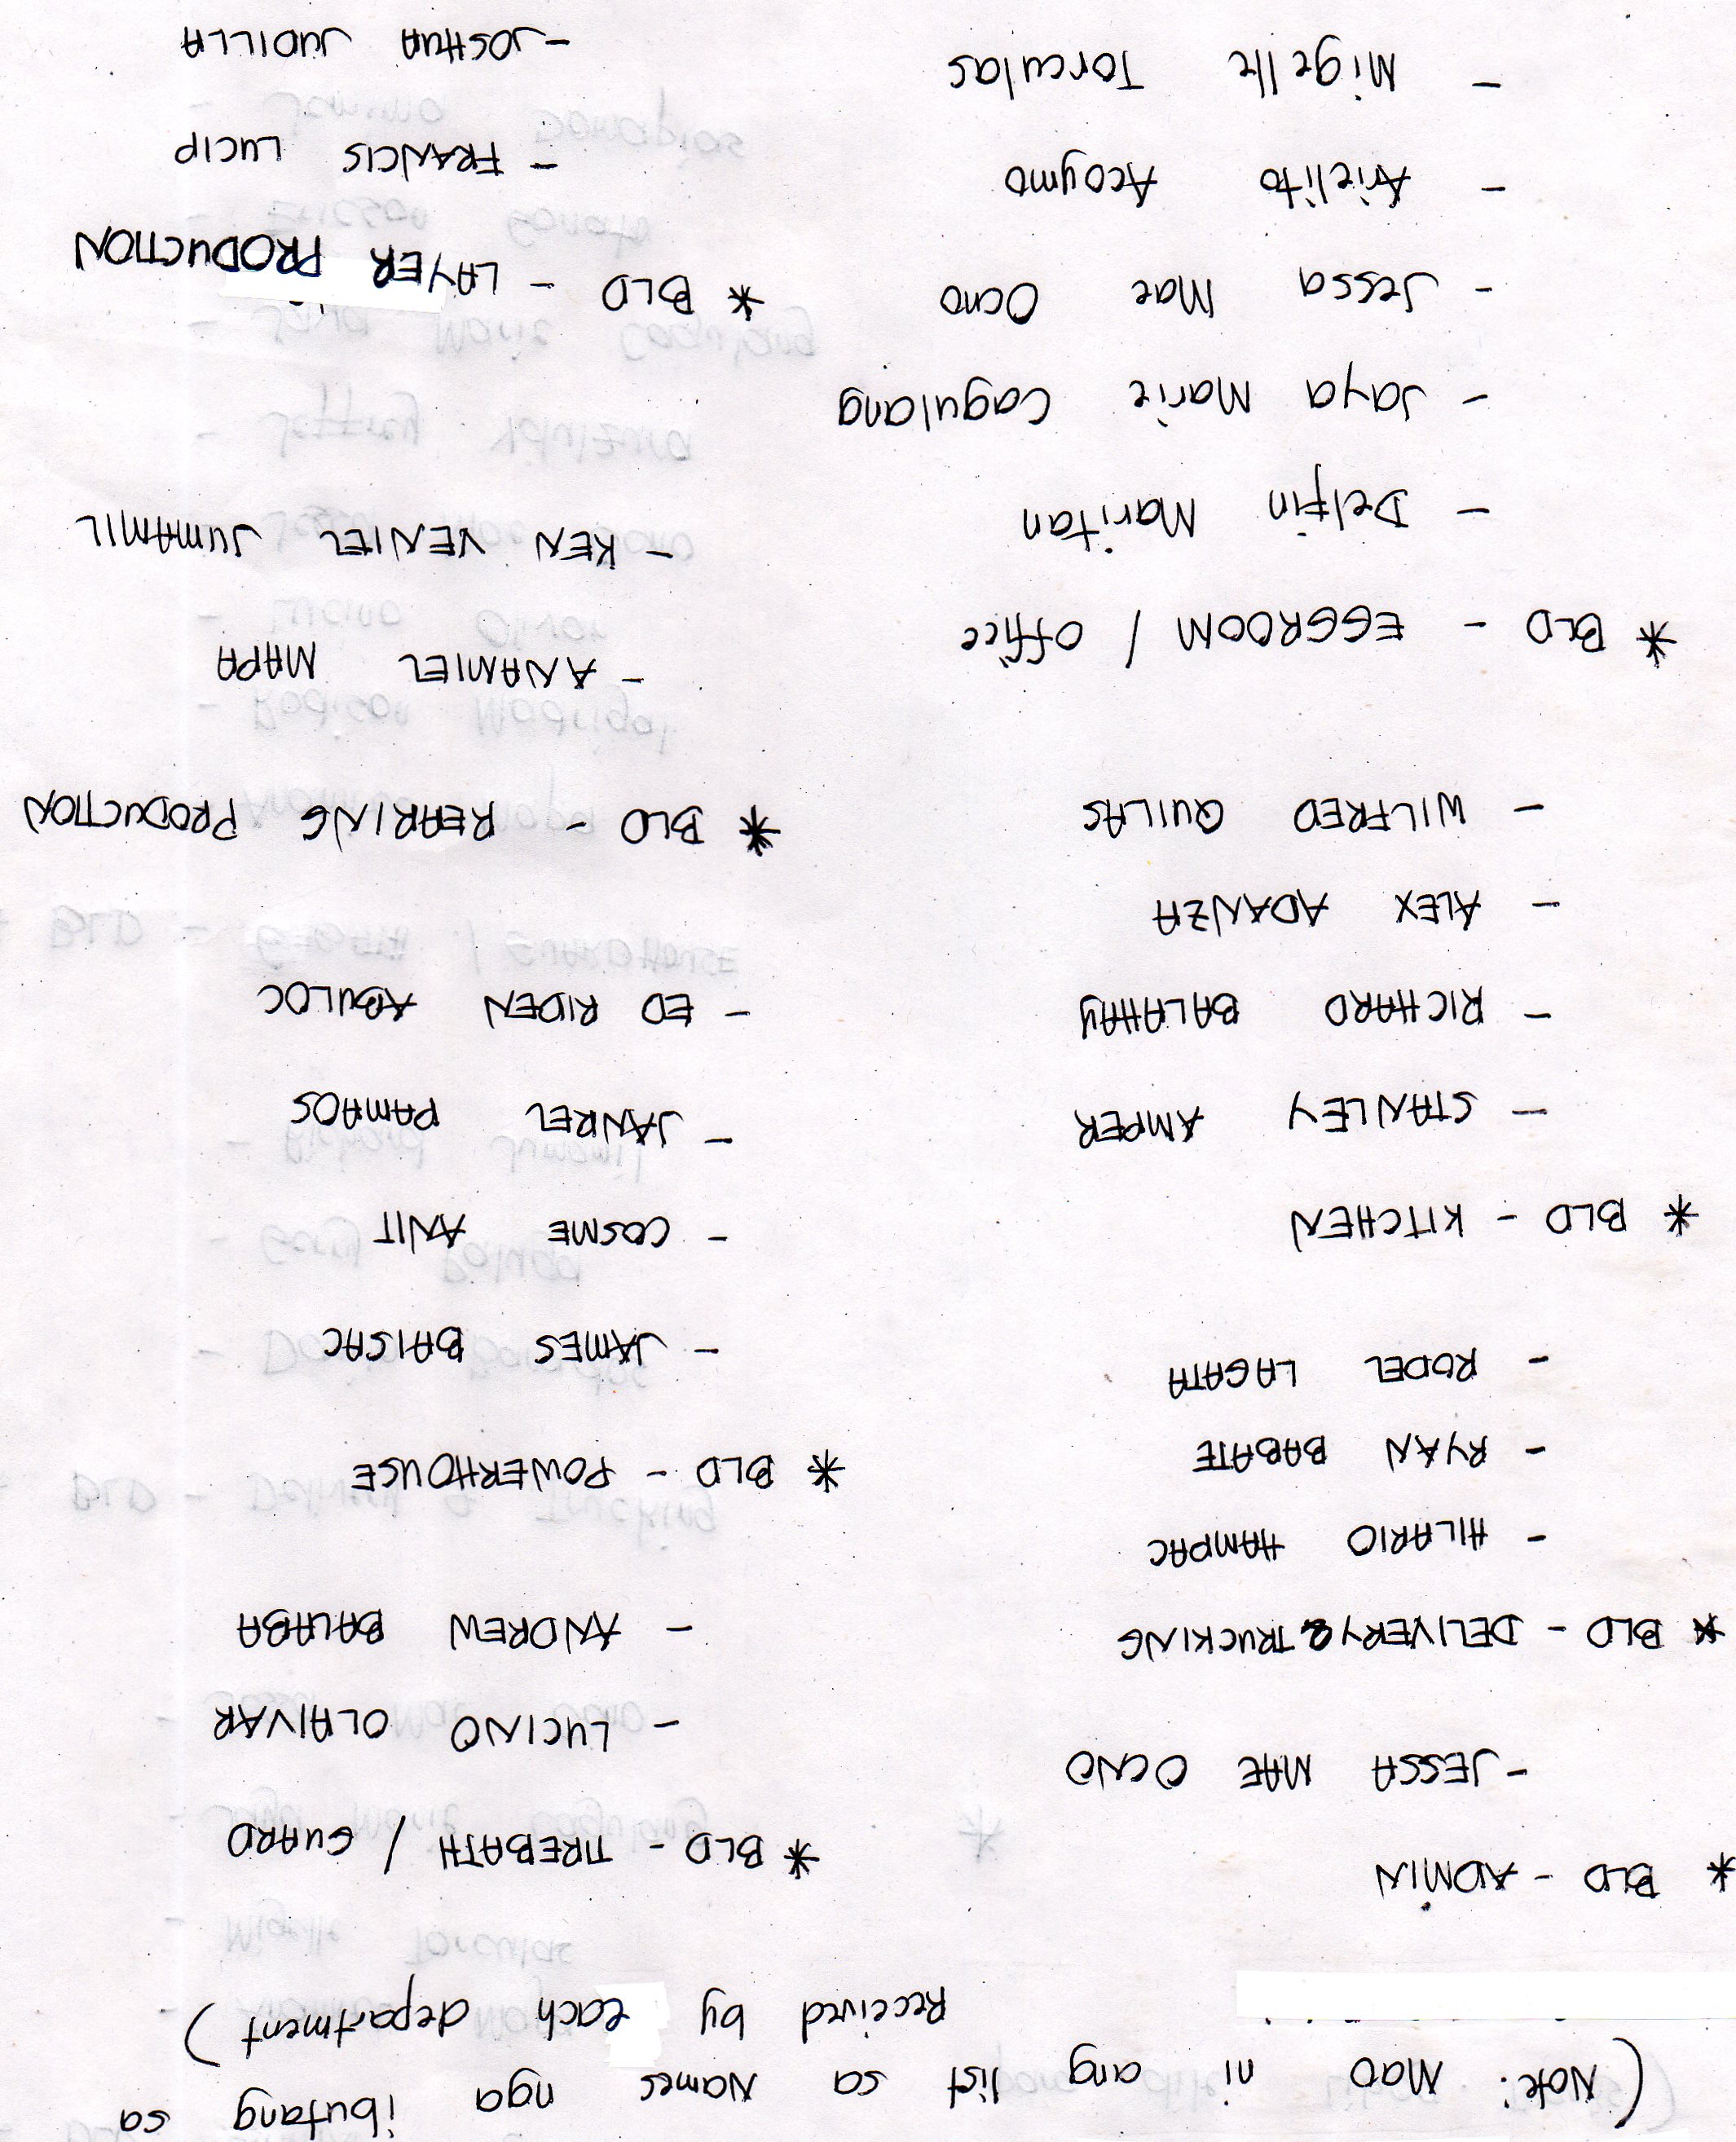 (Note: Mao ni ang list sa Names nga ibutang sa
Received by each department).
* BLD - ADMIN
- JESSA MAE OCNO
* BLD - DELIVERY & TRUCKING
- HILARIO HAMPAC
- RYAN BABATE
- RODEL LAGATA
* BLD - KITCHEN
- STANLEY AMPER
- RICHARD BALAHAY
- ALEX ADANZA
- WILFRED QUILAS
* BLD - EGGROOM / Office
- Delfin Maritan
- Jaya Marie Cagulang
- Jessa Mae Ocno
- Arielito Acoymo
- Migelle Torculas
* BLD - TIREBATH / GUARD
- LUCINO OLAIVAR
- ANDREW BALABA
* BLD - POWERHOUSE
- JAMES BAISAC
- COSME ANIT
- JANREL PAMAOS
- ED RIDEN ABULOC
* BLD - REARING PRODUCTION
- ANAMIEL MAPA
- KEN VENIEL JUMAMIL
* BLD - LAYER PRODUCTION
- FRANCIS LUCIP
- JOSHUA JUDILLA